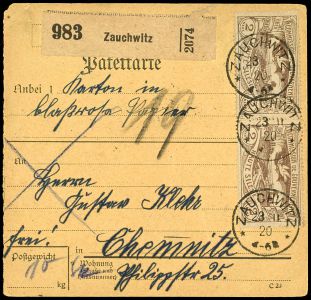 983 Zauchwitz 2074
Paketkarte
Anbei 1 Karton in
blaßrosa Papier
An
Herrn
Gustav Klehr
frei!
in Chemnitz
Postgewicht
kg
Wohnung
Philippstr 25.
C 23
ZAUCHWITZ
23 11
20
ZAUCHWITZ
23 11
20
ZAUCHWITZ
23
20
4-5N